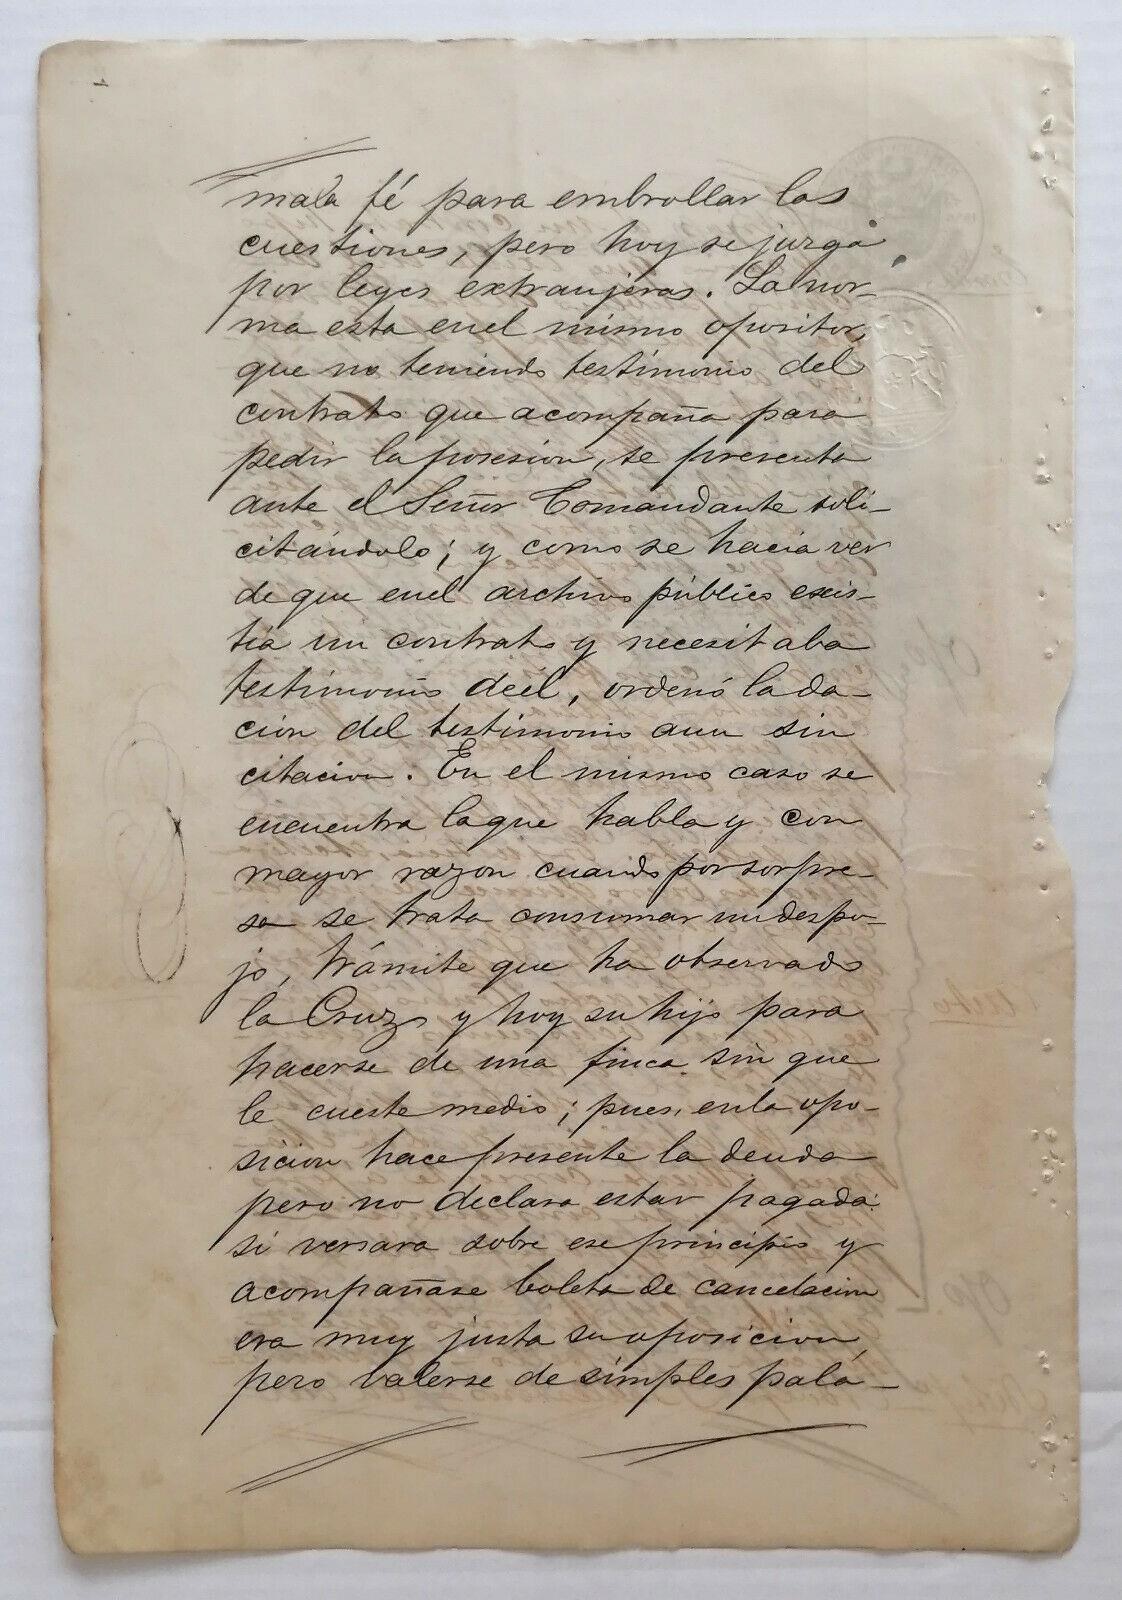 mala fé para embrollar las
cuestiones, pero hoy se jurga
por leyes extranjeras. La nor-
ma esta en el mismo opositor,
que no teniendo testimonio del
contrato que acompaña para
pedir la posesion, se presenta
ante el Señor Comandante soli-
citándolo; y como se hacia ver
de que en el archivo público exis-
tia un contrato y necesitaba
testimonio de él, ordenó la da-
cion del testimonio aun sin
citacion. En el mismo caso se
encuentra la que habla y con
mayor razon cuando por sorpre-
sa se trata consumar un despo-
jo, trámite que ha observado
la Cruz y hoy su hijo para
hacerse de una finca sin que
le cueste medio; pues, en la opo-
sicion hace presente la deuda
pero no declara estar pagada:
si versara sobre ese principio y
acompañase boleta de cancelacion
era muy justa su oposicion,
pero valerse de simples pala-